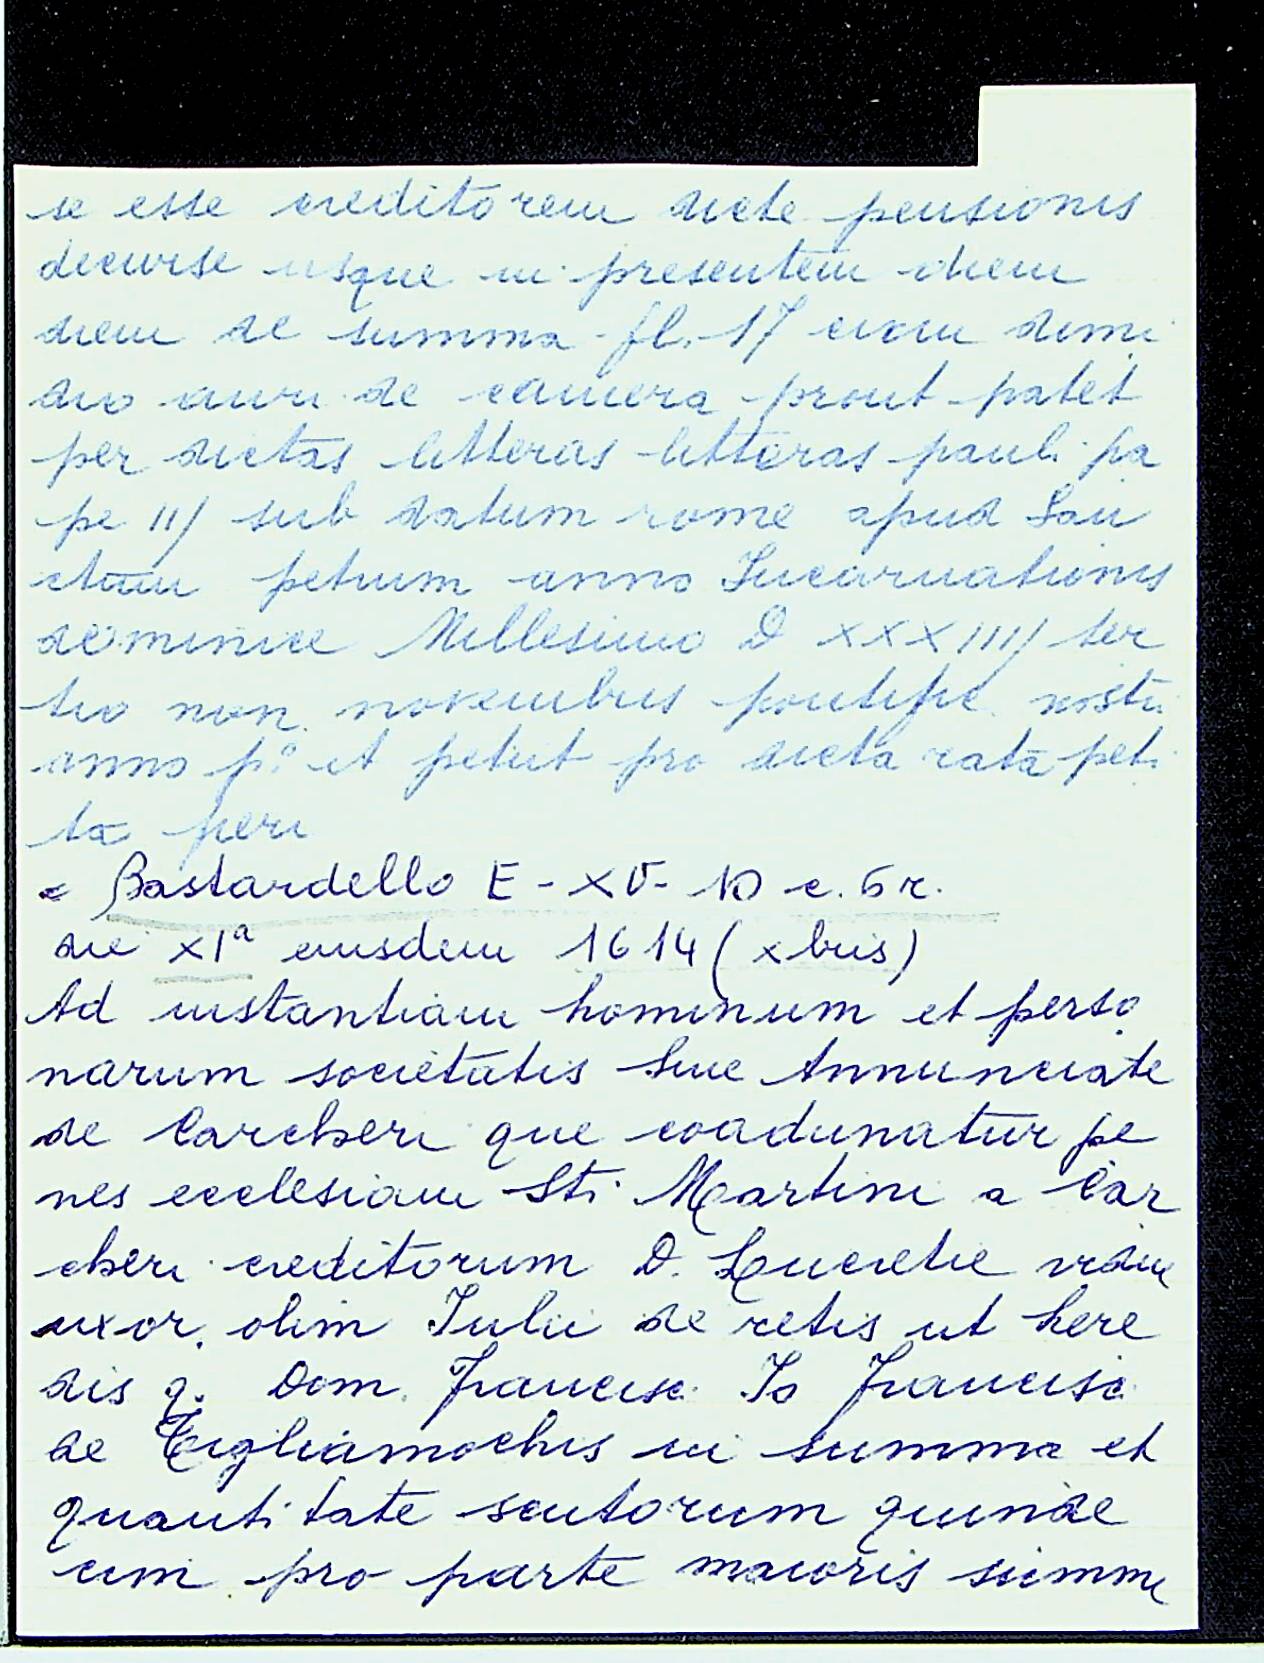 se esse creditorem dicte pensionis
decurse usque in presentem diem
diem de summa fl. 17 cum dimi
dio auri de camera prout patet
per dictas litteras litteras pauli pa
pe III sub datum rome apud San
ctum petrum anno Incarnationis
dominice Millesimo D XXXIIII ter
tio non. novembris pontific. nostri
anno p.º et petiit pro dicta rata peti
ta peri
Bastardello E-XV-10 c. 6 r.
die XIª eiusdem 1614 (xbris)
Ad instantiam hominum et perso
narum societatis Sme Annunciate
de Carcheri que coadunatur pe
nes ecclesiam Sti Martini a Car
cheri creditorum D. Lucretie
uxor. olim Iulii de retis ut here
dis q. Dom. Francisc. Io Francisc.
de Tigliamochis in summa et
quantitate scutorum quinde
cim pro parte maioris summe